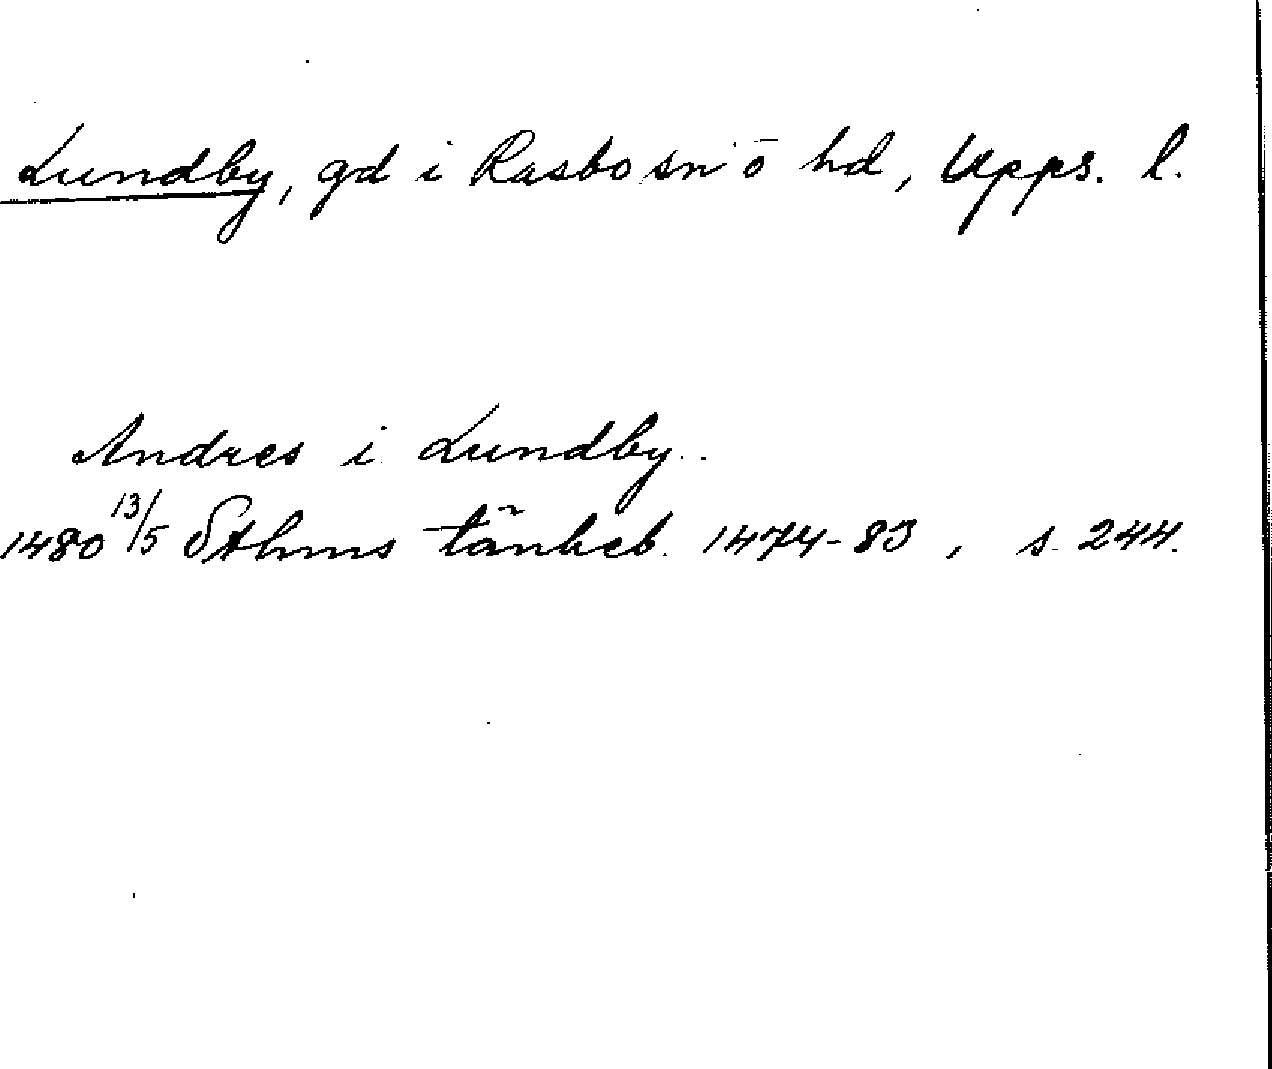 Lundby, gd i Rasbo sn o hd, Upps. l.
Andres i Lundby.
1480 13/5 Sthms tänkeb. 1474-83, s. 244.